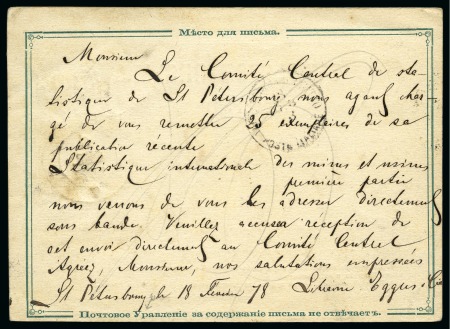 Мѣсто для письма.
Monsieur
Le Comité Central de sta-
tistique de St Petersbourg nous ayant char-
gé de vous remettre 25 exemplaires de sa
publication récente
Statistique internationale des mines et usines
première partie
nous venons de vous les adresser directement
sous bande. Veuillez accuser réception de
cet envoi directement au Comité Central
Agréez, Monsieur, nos salutations empressées
St Petersbourg le 18 78 Librairie Eggers & Cie
Почтовое Управленіе за содержаніе письма не отвѣчаетъ.